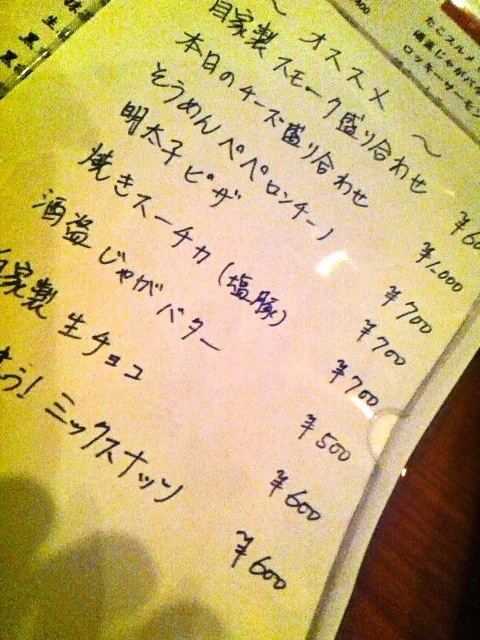 ~ オススメ ~
自家製 スモーク盛り合わせ ¥60
本日のチーズ盛り合わせ ¥1,000
そうめんペペロンチーノ ¥700
明太子ピザ ¥700
焼きスーチカ(塩豚) ¥700
酒盗じゃがバター ¥500
自家製 生チョコ ¥600
う! ミックスナッツ ¥600
たこスルメ
酒盗じゃがバタ
ロッキーサーモ